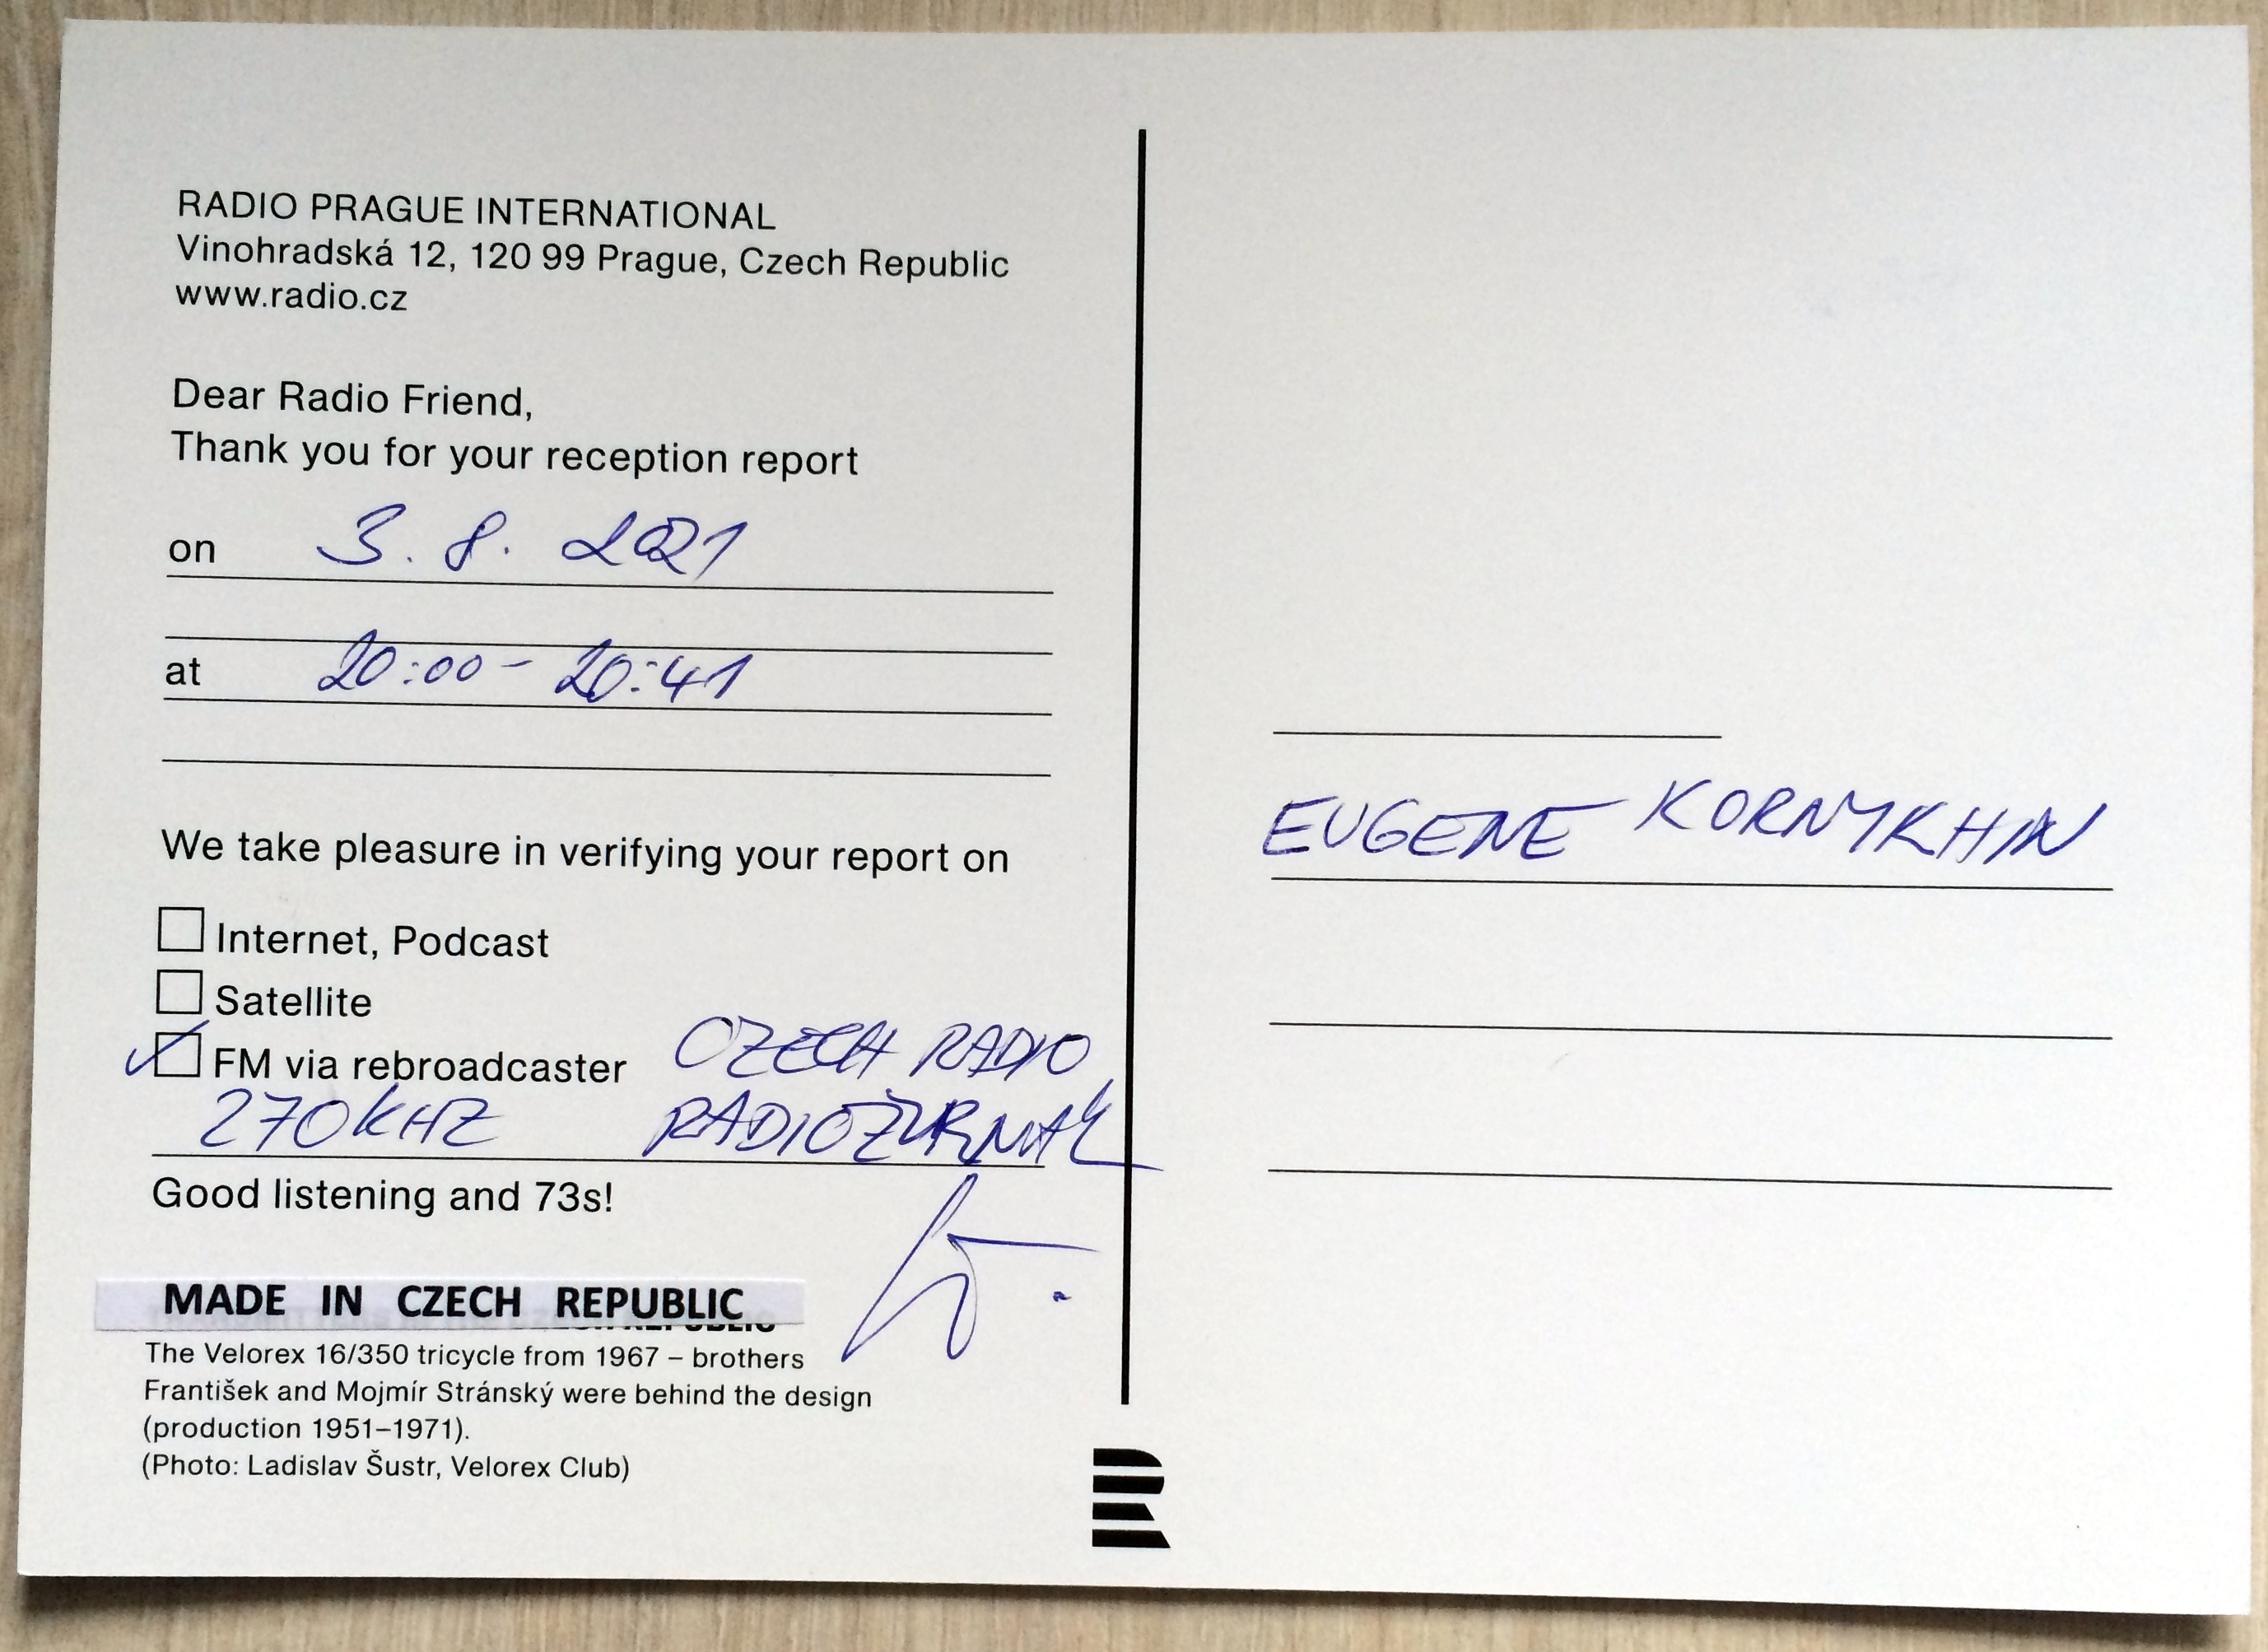 RADIO PRAGUE INTERNATIONAL
Vinohradská 12, 120 99 Prague, Czech Republic
www.radio.cz
Dear Radio Friend,
Thank you for your reception report
on 3. 8. 2021
at 20:00 - 20:41
We take pleasure in verifying your report on
Internet, Podcast
Satellite
FM via rebroadcaster CZECH RADIO
270 kHZ RADIOŽURNÁL
Good listening and 73s!
MADE IN CZECH REPUBLIC
The Velorex 16/350 tricycle from 1967 – brothers
František and Mojmír Stránský were behind the design
(production 1951–1971).
(Photo: Ladislav Šustr, Velorex Club)
EUGENE KORNYKHIN